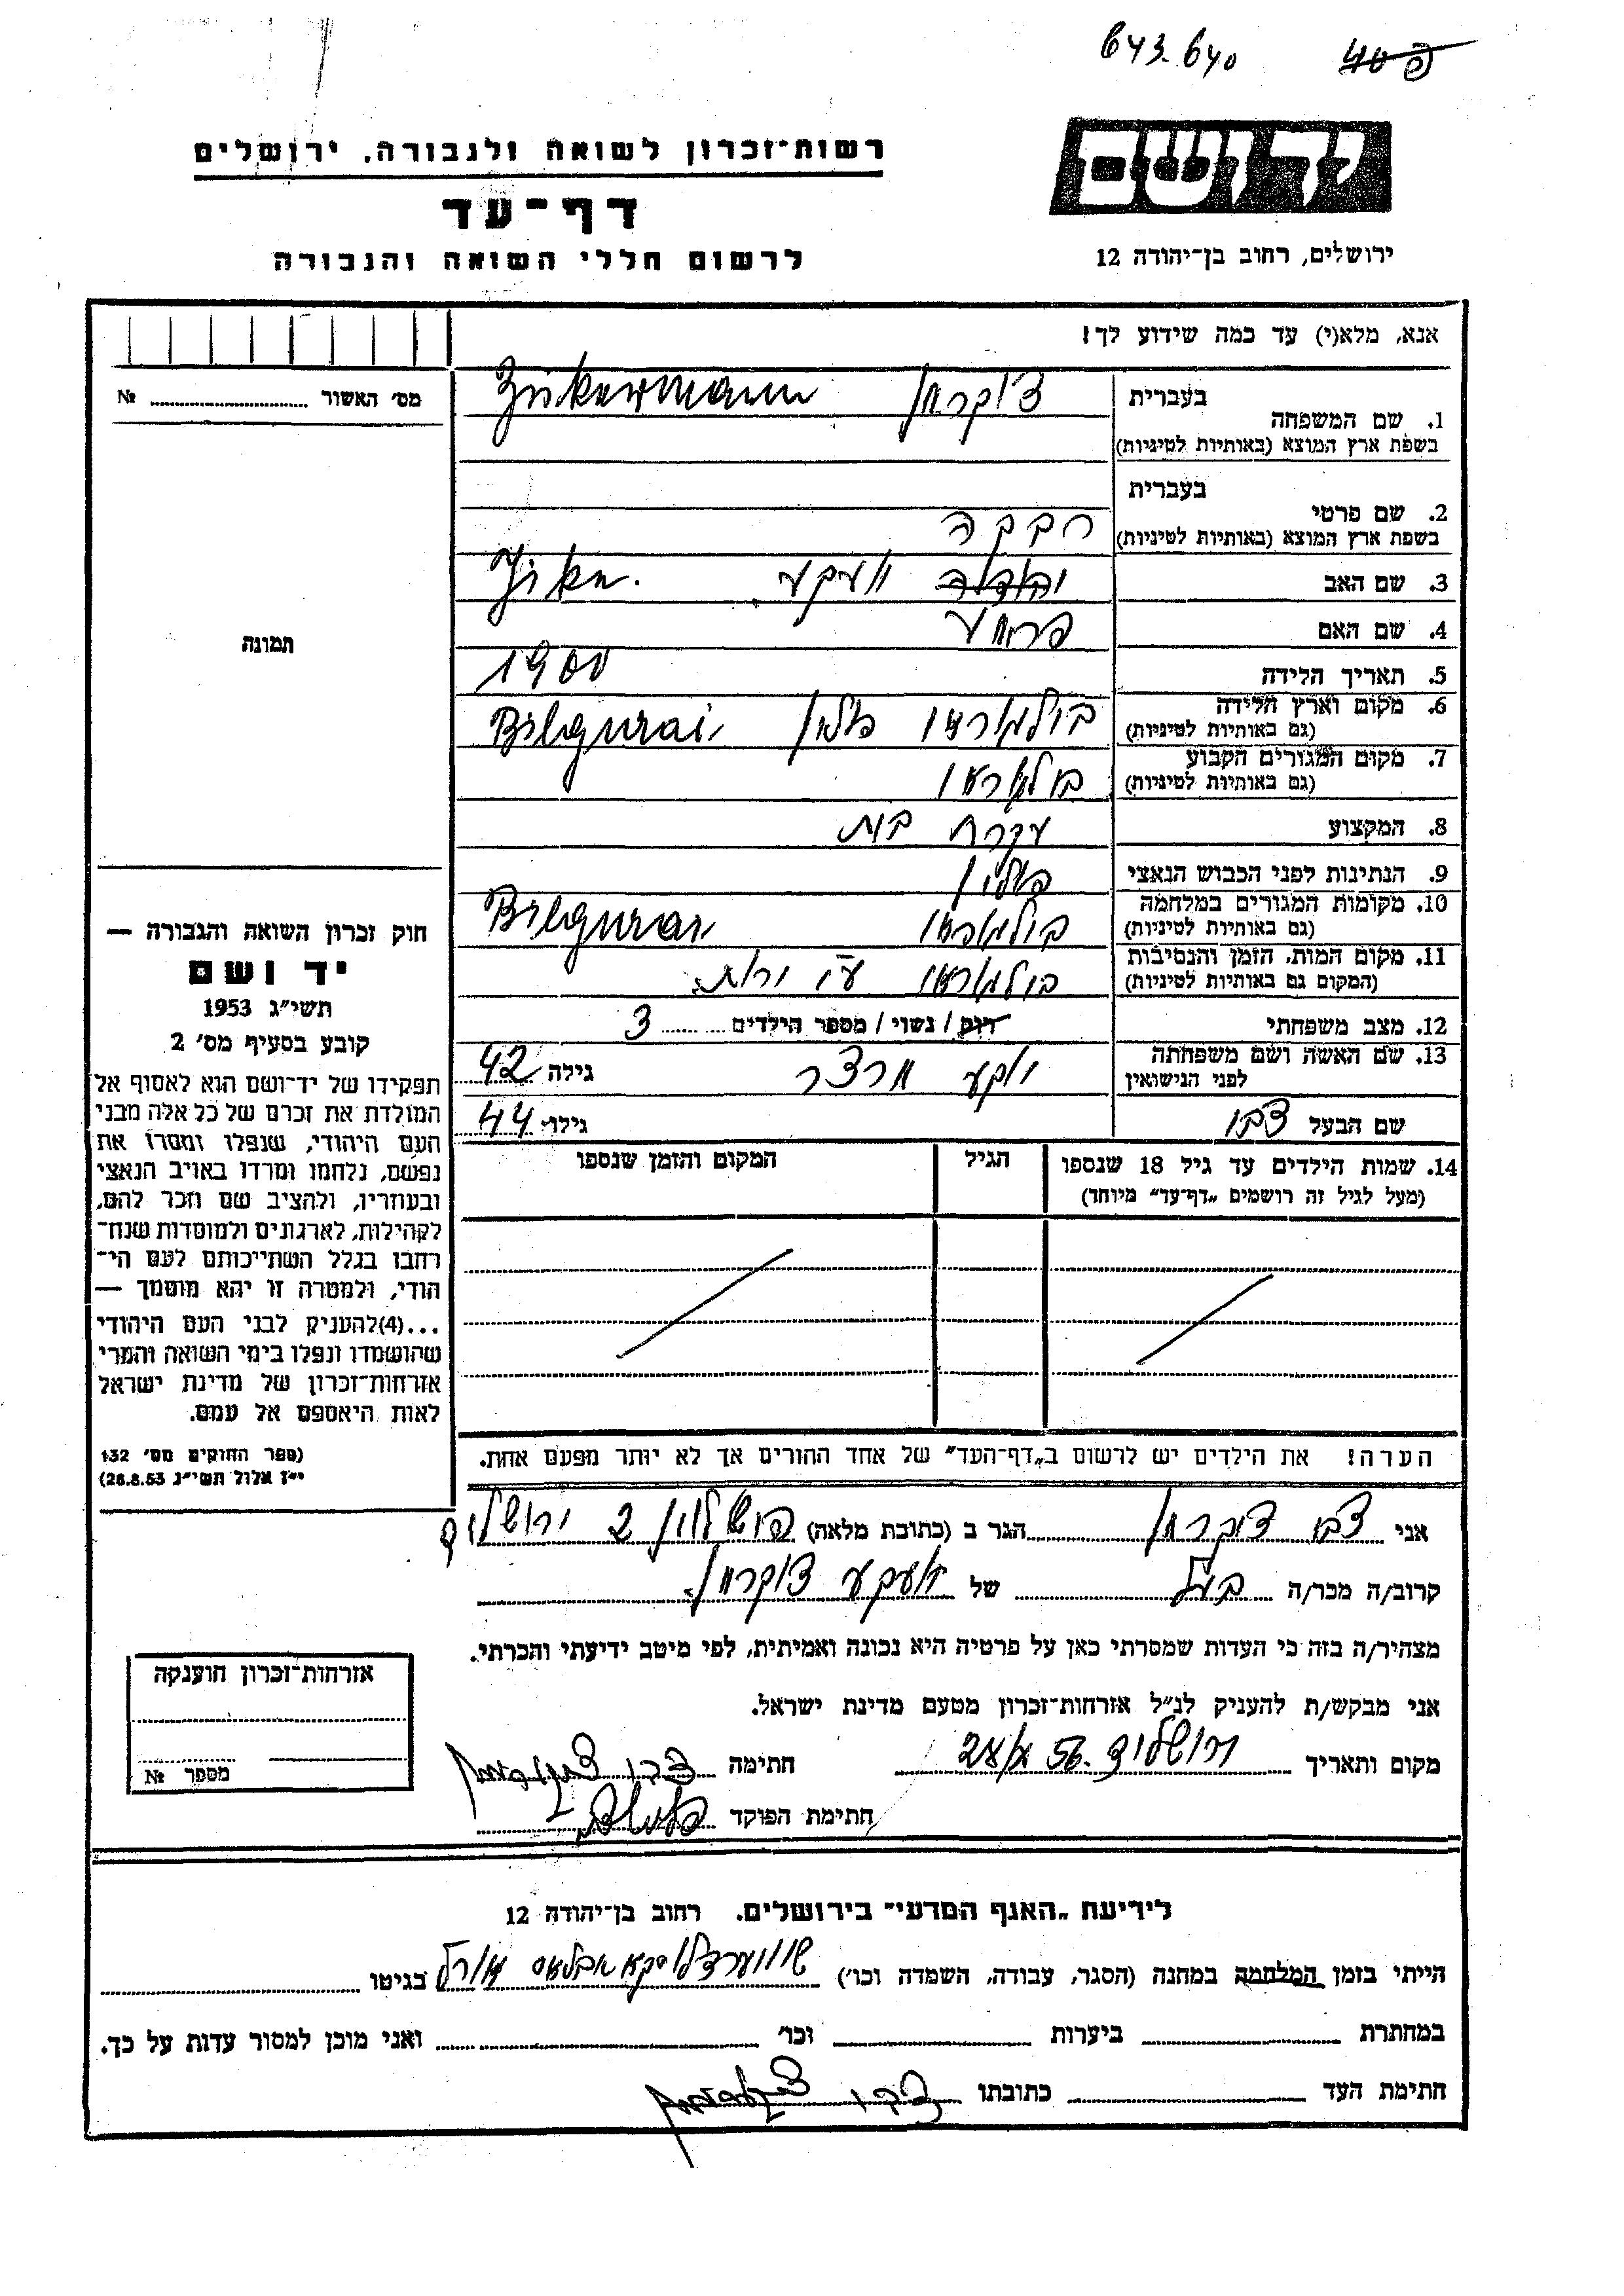 643.640 40
יד ושם
רשות־זכרון לשואה ולגבורה, ירושלים
דף־עד
לרשום חללי השואה והגבורה
ירושלים, רחוב בן־יהודה 12
אנא, מלא(י) עד כמה שידוע לך!
מס' האשור № 
1. שם המשפחה בעברית צוקרמן Zukermann
בשפת ארץ המוצא (באותיות לטיניות)
2. שם פרטי בעברית
בשפת ארץ המוצא (באותיות לטיניות) רבקה
3. שם האב
4. שם האם
5. תאריך הלידה 1900
6. מקום וארץ הלידה פולין Bilgurai
(גם באותיות לטיניות)
7. מקום המגורים הקבוע
(גם באותיות לטיניות)
8. המקצוע עקרת בית
9. הנתינות לפני הכבוש הנאצי פולין
10. מקומות המגורים במלחמה Bilgurai
(גם באותיות לטיניות)
11. מקום המות, הזמן והנסיבות
(המקום גם באותיות לטיניות)
12. מצב משפחתי רוק / נשוי / מספר הילדים 3
13. שם האשה ושם משפחתה
לפני הנישואין גילה 42
שם הבעל צבי גילו 44
14. שמות הילדים עד גיל 18 שנספו הגיל המקום והזמן שנספו
(מעל לגיל זה רושמים „דף־עד” מיוחד)
הערה! את הילדים יש לרשום ב„דף־העד” של אחד ההורים אך לא יותר מפעם אחת.
תמונה
חוק זכרון השואה והגבורה —
יד ושם
תשי״ג 1953
קובע בסעיף מס' 2
תפקידו של יד־ושם הוא לאסוף אל
המולדת את זכרם של כל אלה מבני
העם היהודי, שנפלו ומסרו את
נפשם, נלחמו ומרדו באויב הנאצי
ובעוזריו, ולהציב שם וזכר להם,
לקהילות, לארגונים ולמוסדות שנח־
רחבו בגלל השתייכותם לעם הי־
הודי, ולמטרה זו יהא מוסמך —
...(4)להעניק לבני העם היהודי
שהושמדו ונפלו בימי השואה והמרי
אזרחות־זכרון של מדינת ישראל
לאות היאספם אל עמם.
(ספר החוקים מס' 132
י״ז אלול תשי״ג 28.8.53)
אני צבי צוקרמן הגר ב (כתובת מלאה) 2 ירושלים
קרוב/ה מכר/ה בעל של צוקרמן
מצהיר/ה בזה כי העדות שמסרתי כאן על פרטיה היא נכונה ואמיתית, לפי מיטב ידיעתי והכרתי.
אני מבקש/ת להעניק לנ״ל אזרחות־זכרון מטעם מדינת ישראל.
מקום ותאריך ירושלים 56 חתימה צבי
חתימת הפוקד
אזרחות־זכרון הוענקה
מספר №
לידיעת „האגף המדעי” בירושלים. רחוב בן־יהודה 12
הייתי בזמן המלחמה במחנה (הסגר, עבודה, השמדה וכו') בגיטו
במחתרת ביערות וכו' ואני מוכן למסור עדות על כך.
חתימת העד כתובתו צבי